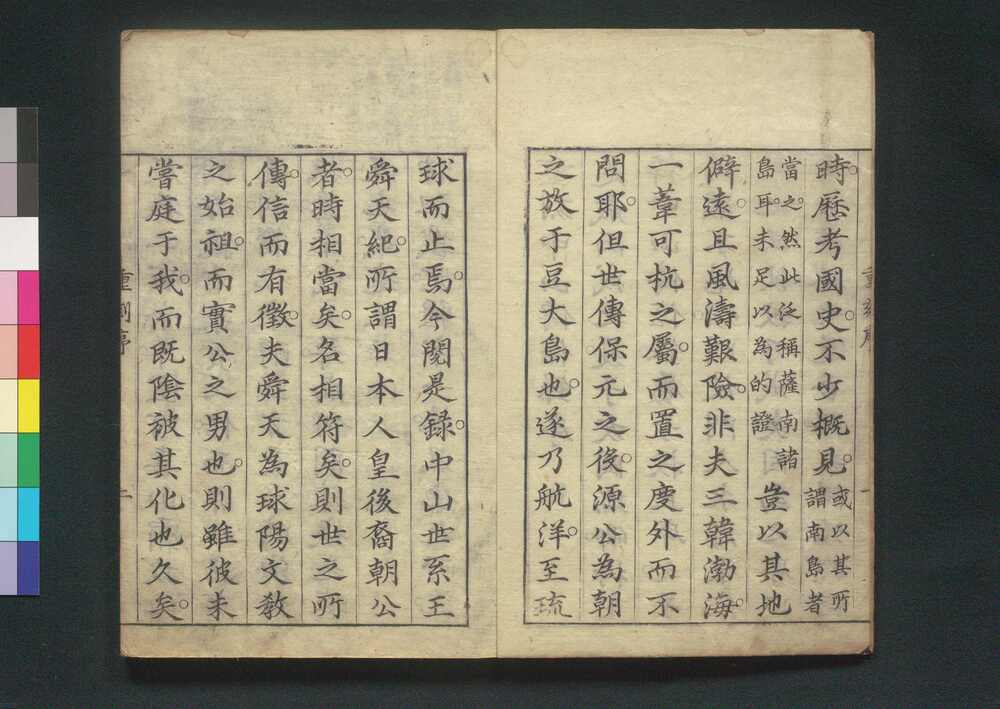 重刻序 一
時。歷考國史。不少概見。
或以其所
謂南島者
當之。然此泛稱薩南諸
島耳。未足以為的證
豈以其地
僻遠。且風濤艱險。非夫三韓渤海。
一葦可杭之屬。而置之慶外而不
問耶。但世傳保元之役。源公為朝
之放于豆大島也。遂乃航洋。至琉
球而止焉。今閱是錄。中山世系王
舜天紀。所謂日本人皇後裔朝公
者。時相當矣。名相符矣。則世之所
傳。信而有徵。夫舜天為球陽文教
之始祖。而實公之男也。則雖彼未
嘗庭于我。而既陰被其化也久矣。
重刻序 二